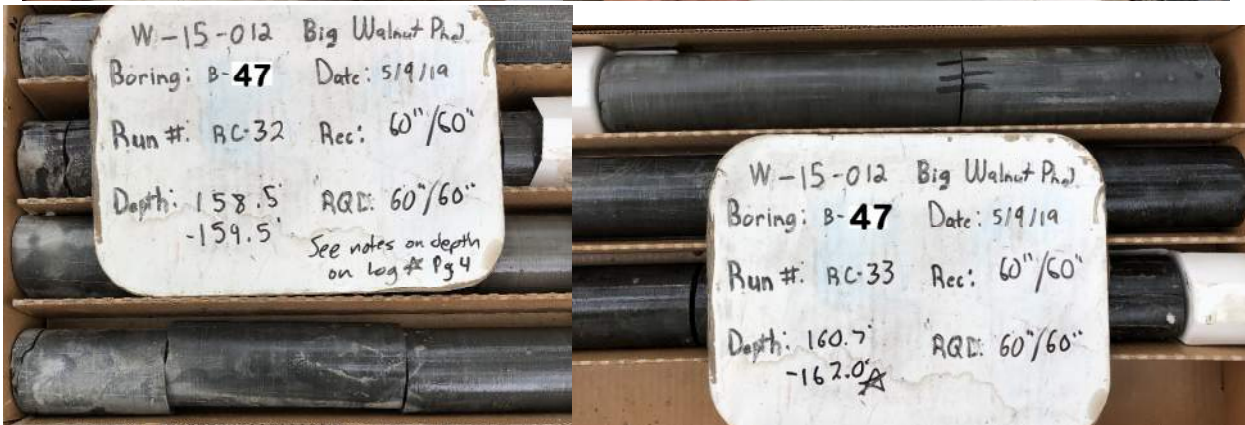 W-15-012 Big Walnut Ph2
Boring: B-47 Date: 5/9/19
Run #: RC-32 Rec: 60"/60"
Depth: 158.5' RQD: 60"/60"
-159.5'
See notes on depth
on Log ☆ Pg 4
W-15-012 Big Walnut Ph2
Boring: B-47 Date: 5/9/19
Run #: RC-33 Rec: 60"/60"
Depth: 160.7' RQD: 60"/60"
-162.0' ☆